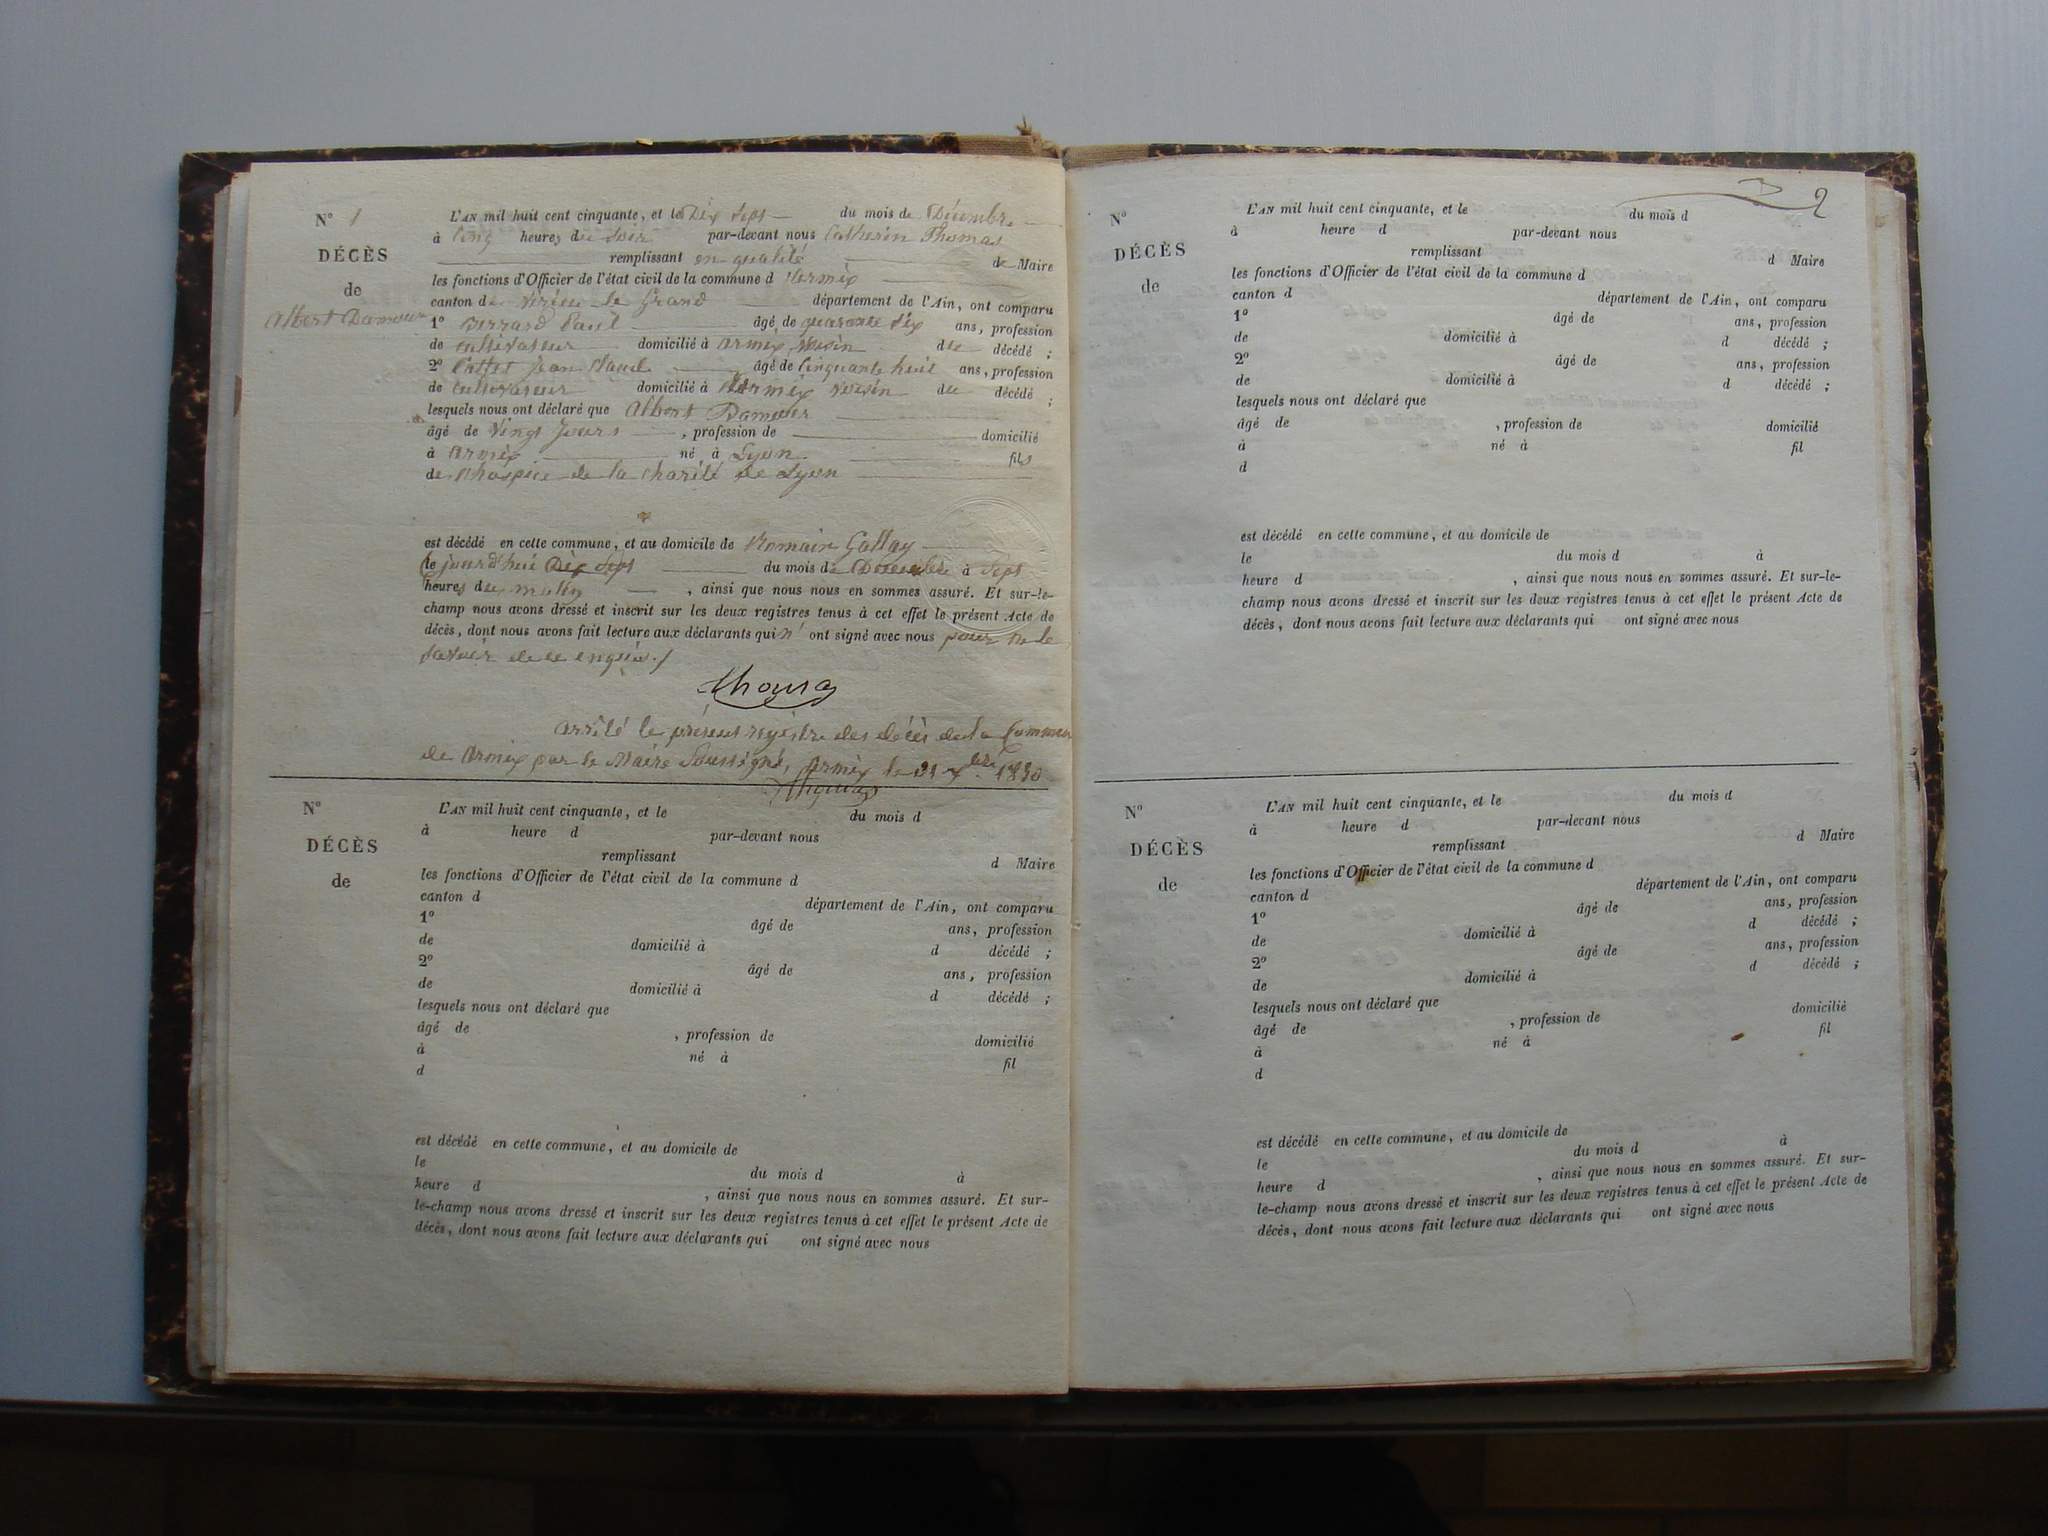 N° 1
DÉCÈS
de
Albert Damour
L'AN mil huit cent cinquante, et le Dix Sept du mois de Décembre
à Cinq heures du Soir par-devant nous Catherin Thomas
remplissant en qualité de Maire
les fonctions d'Officier de l'état civil de la commune d'Armix
canton de Virieu le Grand département de l'Ain, ont comparu
1° Berrard Paul âgé de quarante Six ans, profession
de cultivateur domicilié à Armix, voisin du décédé ;
2° Jean Claude âgé de Cinquante huit ans, profession
de cultivateur domicilié à Armix voisin du décédé ;
lesquels nous ont déclaré que Albert Damour
âgé de Vingt Jours , profession de domicilié
à Armix né à Lyon fils
de l'hospice de la Charité de Lyon
est décédé en cette commune, et au domicile de Romain Gallay
le jourd'hui Dix Sept du mois de Décembre à Sept
heures du matin , ainsi que nous nous en sommes assuré. Et sur-le-
champ nous avons dressé et inscrit sur les deux registres tenus à cet effet le présent Acte de
décès, dont nous avons fait lecture aux déclarants qui n'ont signé avec nous pour ne le
savoir de ce enquis./
Thomas
Arrêté le présent registre des décès de la Commune
de Armix par le Maire Soussigné, Armix le 31 Xbre 1850
Thomas
N°
DÉCÈS
de
L'AN mil huit cent cinquante, et le du mois d
à heure d par-devant nous
remplissant d Maire
les fonctions d'Officier de l'état civil de la commune d
canton d département de l'Ain, ont comparu
1° âgé de ans, profession
de domicilié à d décédé ;
2° âgé de ans, profession
de domicilié à d décédé ;
lesquels nous ont déclaré que
âgé de , profession de domicilié
à né à fil
d
est décédé en cette commune, et au domicile de
le du mois d à
heure d , ainsi que nous nous en sommes assuré. Et sur-
le-champ nous avons dressé et inscrit sur les deux registres tenus à cet effet le présent Acte de
décès, dont nous avons fait lecture aux déclarants qui ont signé avec nous
2
N°
DÉCÈS
de
L'AN mil huit cent cinquante, et le du mois d
à heure d par-devant nous
remplissant d Maire
les fonctions d'Officier de l'état civil de la commune d
canton d département de l'Ain, ont comparu
1° âgé de ans, profession
de domicilié à d décédé ;
2° âgé de ans, profession
de domicilié à d décédé ;
lesquels nous ont déclaré que
âgé de , profession de domicilié
à né à fil
d
est décédé en cette commune, et au domicile de
le du mois d à
heure d , ainsi que nous nous en sommes assuré. Et sur-le-
champ nous avons dressé et inscrit sur les deux registres tenus à cet effet le présent Acte de
décès, dont nous avons fait lecture aux déclarants qui ont signé avec nous
N°
DÉCÈS
de
L'AN mil huit cent cinquante, et le du mois d
à heure d par-devant nous
remplissant d Maire
les fonctions d'Officier de l'état civil de la commune d
canton d département de l'Ain, ont comparu
1° âgé de ans, profession
de domicilié à d décédé ;
2° âgé de ans, profession
de domicilié à d décédé ;
lesquels nous ont déclaré que
âgé de , profession de domicilié
à né à fil
d
est décédé en cette commune, et au domicile de
le du mois d à
heure d , ainsi que nous nous en sommes assuré. Et sur-
le-champ nous avons dressé et inscrit sur les deux registres tenus à cet effet le présent Acte de
décès, dont nous avons fait lecture aux déclarants qui ont signé avec nous